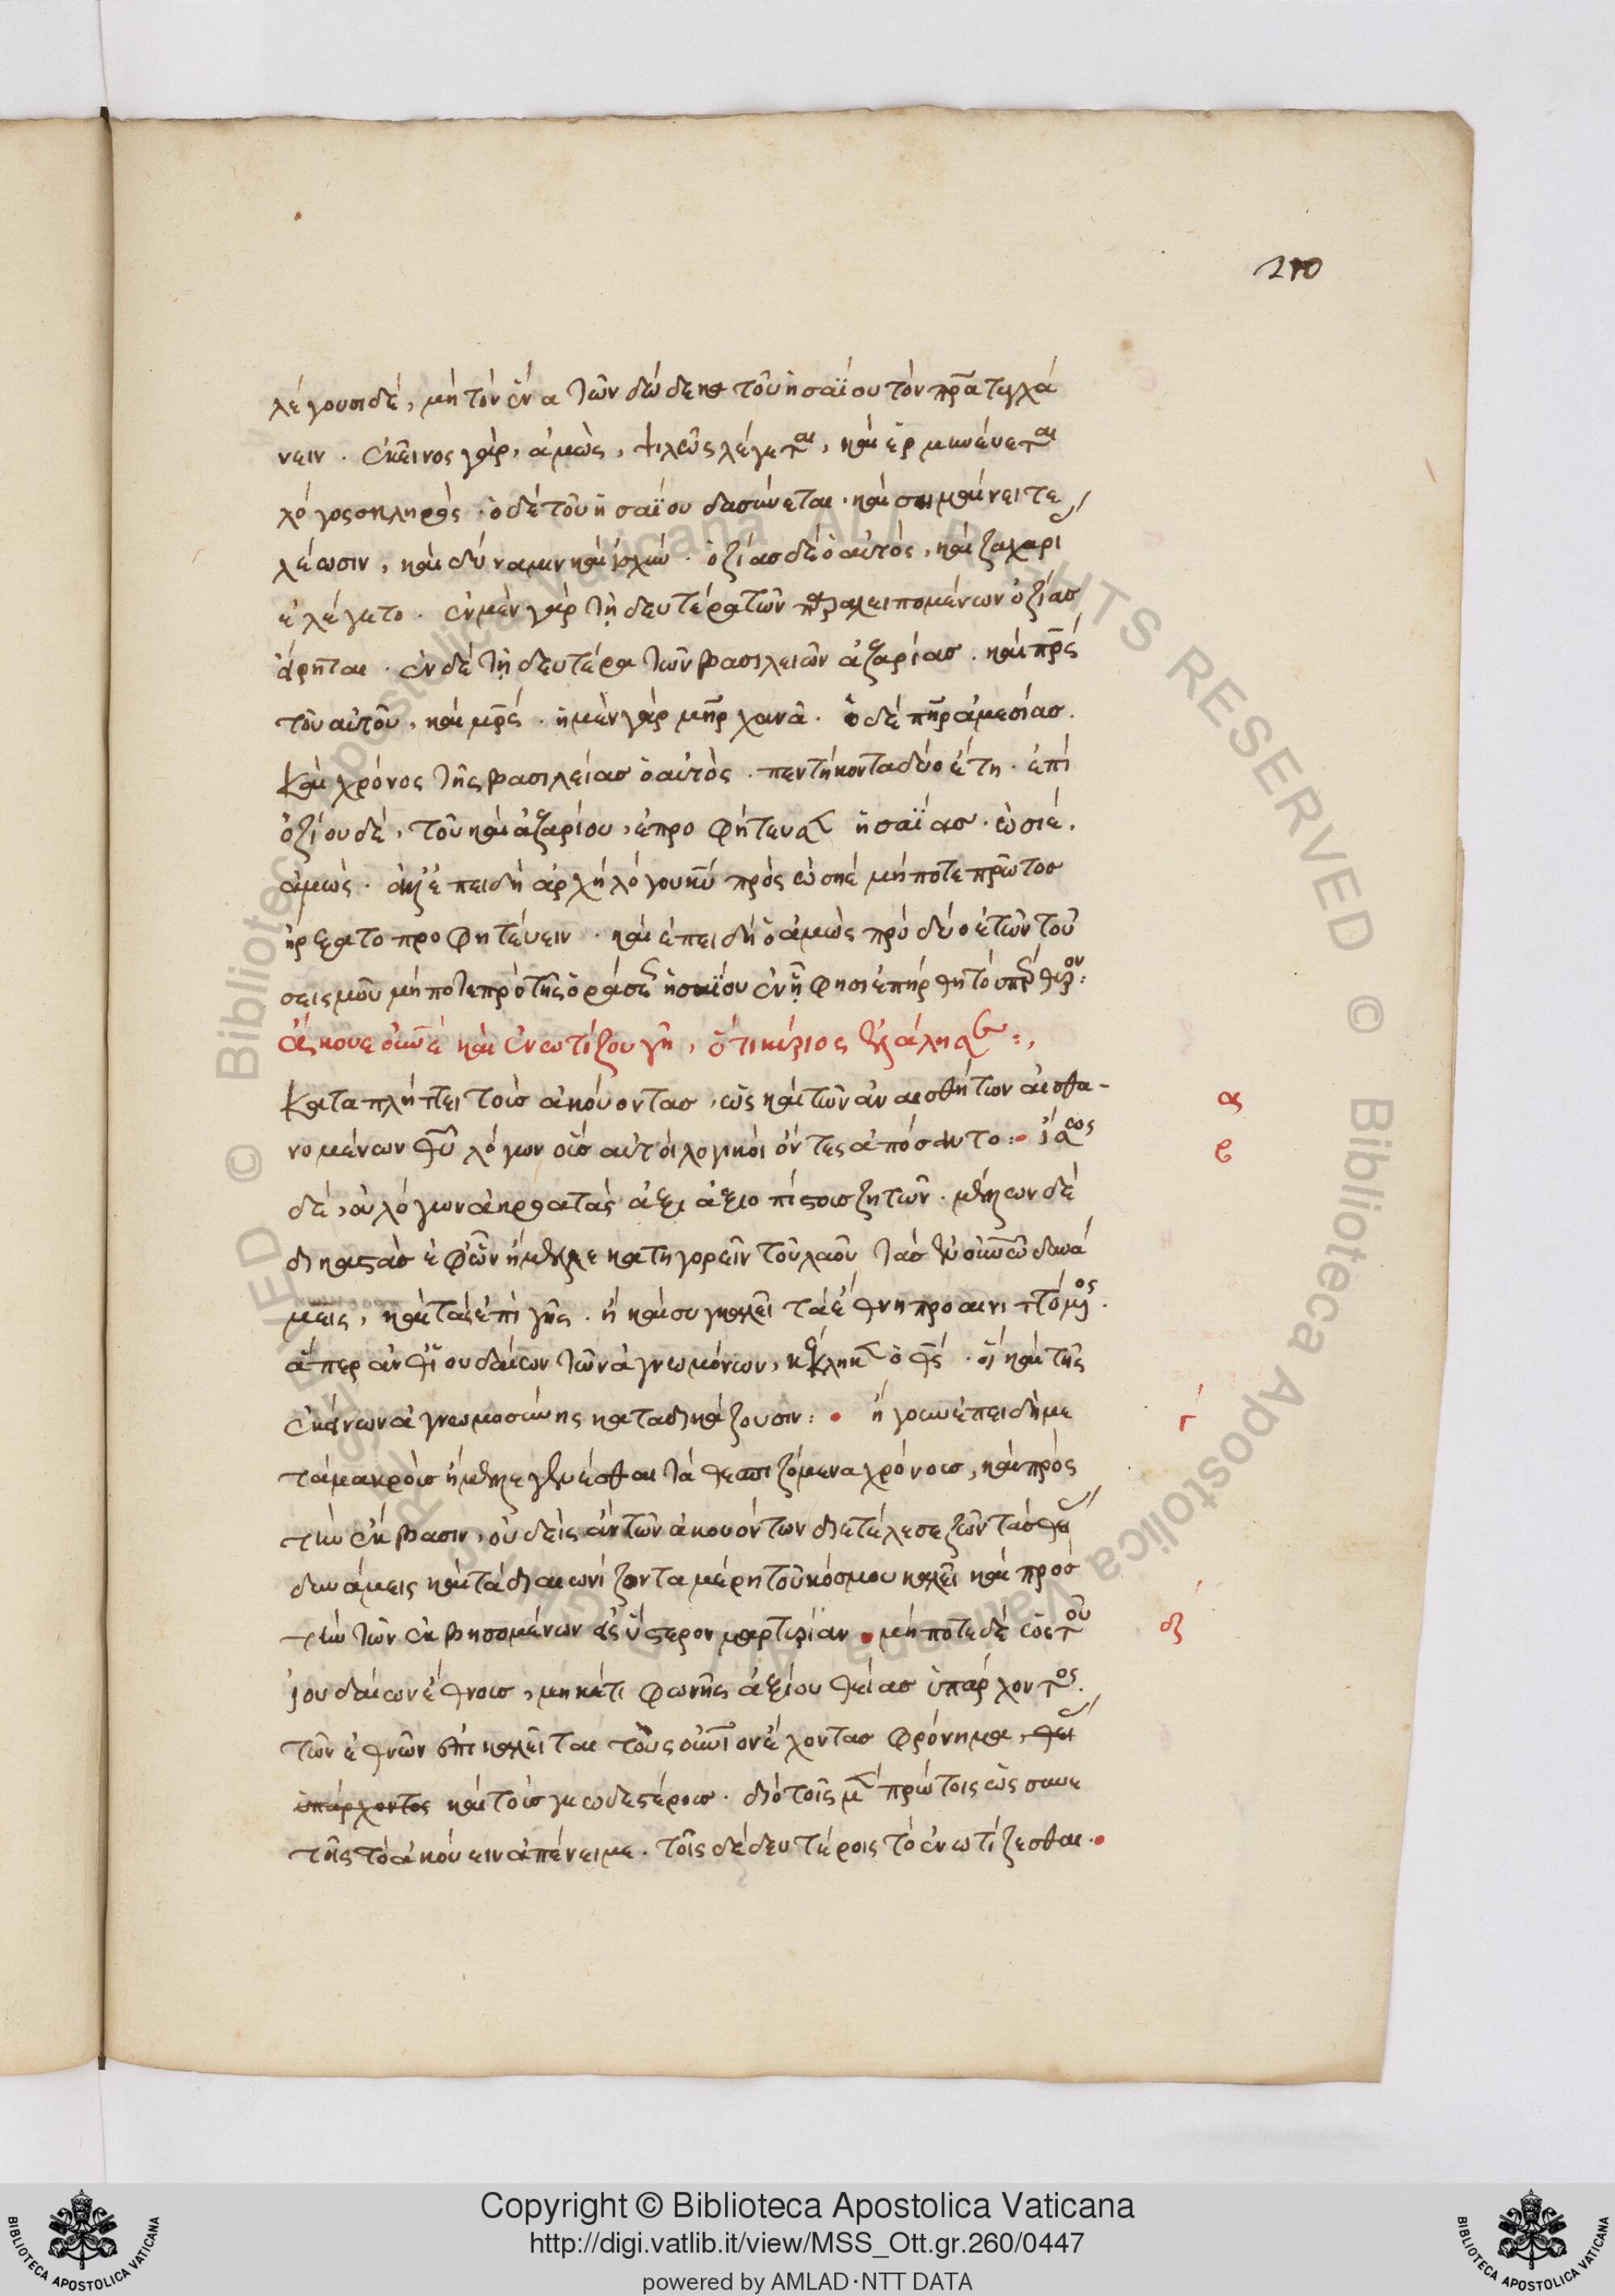 210
λέγουσι δέ, μὴ τὸν ἕνα τῶν δώδεκα τοῦ ἠσαΐου τὸν πρ̅α τυγχά
νειν. ἐκεῖνος γὰρ, ἀμὼς, ψιλῶς λέγεται, καὶ ἑρμηνεύεται
λόγος σκληρὸς. ὁ δὲ τοῦ ἠσαΐου δασύνεται. καὶ σημαίνει τε
λέωσιν, καὶ δύναμιν καὶ ἰσχύν. ὀζίας δὲ ὁ αὐτὸς, καὶ ζαχαρί
ἐλέγετο. ἐν μὲν γὰρ τῇ δευτέρα τῶν παραλειπομένων ὀζίας
εἴρηται. ἐν δὲ τῇ δευτέρα τῶν βασιλειῶν ἀζαρίας. καὶ πρ̅ς
τοῦ αὐτοῦ, καὶ μρ̅ς. ἡ μὲν γὰρ μη̅ρ χανᾶ. ὁ δὲ πη̅ρ ἀμεσίας.
καὶ χρόνος τῆς βασιλείας ὁ αὐτὸς. πεντήκοντα δύο ἔτη. ἐπὶ
ὀζίου δὲ, τοῦ καὶ ἀζαρίου, ἐπροφήτευσαν ἠσαΐας. ὡσιέ.
ἀμώς. ἀλλ' ἐπειδὴ ἀρχὴ λόγου κ̅υ πρὸς ὡσηέ μήποτε πρῶτος
ἤρξατο προφητεύειν. καὶ ἐπειδὴ ὁ ἀμὼς πρὸ δύο ἐτῶν τοῦ
σεισμοῦ μήποτε πρὸ τῆς ὁράσεως ἠσαΐου ἐν ᾗ φησι ἐπήρθη τὸ ὑπέρθυρον:
ἄκουε οὐ̅νέ καὶ ἐνωτίζου γῆ, ὅτι κύριος ἐλάλησεν:,
καταπλήττει τοὺς ἀκούοντας, ὡς καὶ τῶν ἀναισθήτων αἰσθα-
νομένων θ̅υ λόγων οὓς αὐτοὶ λογικοὶ ὄντες ἀπόσαντο:• ἴσως
δὲ, ὁ λόγων ἀκροατὰς ἄξει ἀξιοπίστους ζητῶν. μᾶλλον δὲ
δικαστὰς ἐφ' ὧν ἤμελλε κατηγορεῖν τοῦ λαοῦ τὰς ἐν οὐ̅νῶ δυνά
μεις, καὶ τὰς ἐπὶ γῆς. ἢ καὶ συγκαλεῖ τὰ ἔθνη προαινιττόμενος.
ἅπερ ἀντὶ ἰουδαίων τῶν ἀγνωμόνων, κέκληκεν ὁ θ̅ς. οἳ καὶ τῆς
ἐκείνων ἀγνωμοσύνης καταδικάζουσιν:• ἢ γοῦν ἐπειδὴ με
τὰ μακροὺς ἤμελλε γενέσθαι τὰ θεσπιζόμενα χρόνους, καὶ πρὸς
τὴν ἔκβασιν, οὐδεὶς ἂν τῶν ἀκουόντων διετέλεσε ζῶν τὰς θεί
δυνάμεις καὶ τὰ διαιωνίζοντα μέρη τοῦ κόσμου καλεῖ καὶ πρὸς
τὴν τῶν ἐκβησομένων ἐς ὕστερον μαρτυρίαν • μήποτε δὲ ὡς τοῦ
ἰουδαίων ἔθνους, μηκέτι φωνῆς ἀξίου θείας ὑπάρχοντος.
τῶν ἐθνῶν ἐπικαλεῖται τοὺς οὐ̅νιον ἔχοντας φρόνημα, θεί
ὑπάρχοντος καὶ τοὺς γεωδεστέρους. διὸ τοῖς μὲν πρώτοις ὡς συνε
τῆς τὸ ἀκούειν ἀπένειμε. τοῖς δὲ δευτέροις τὸ ἐνωτίζεσθαι.•
Copyright © Biblioteca Apostolica Vaticana
http://digi.vatlib.it/view/MSS_Ott.gr.260/0447
powered by AMLAD·NTT DATA